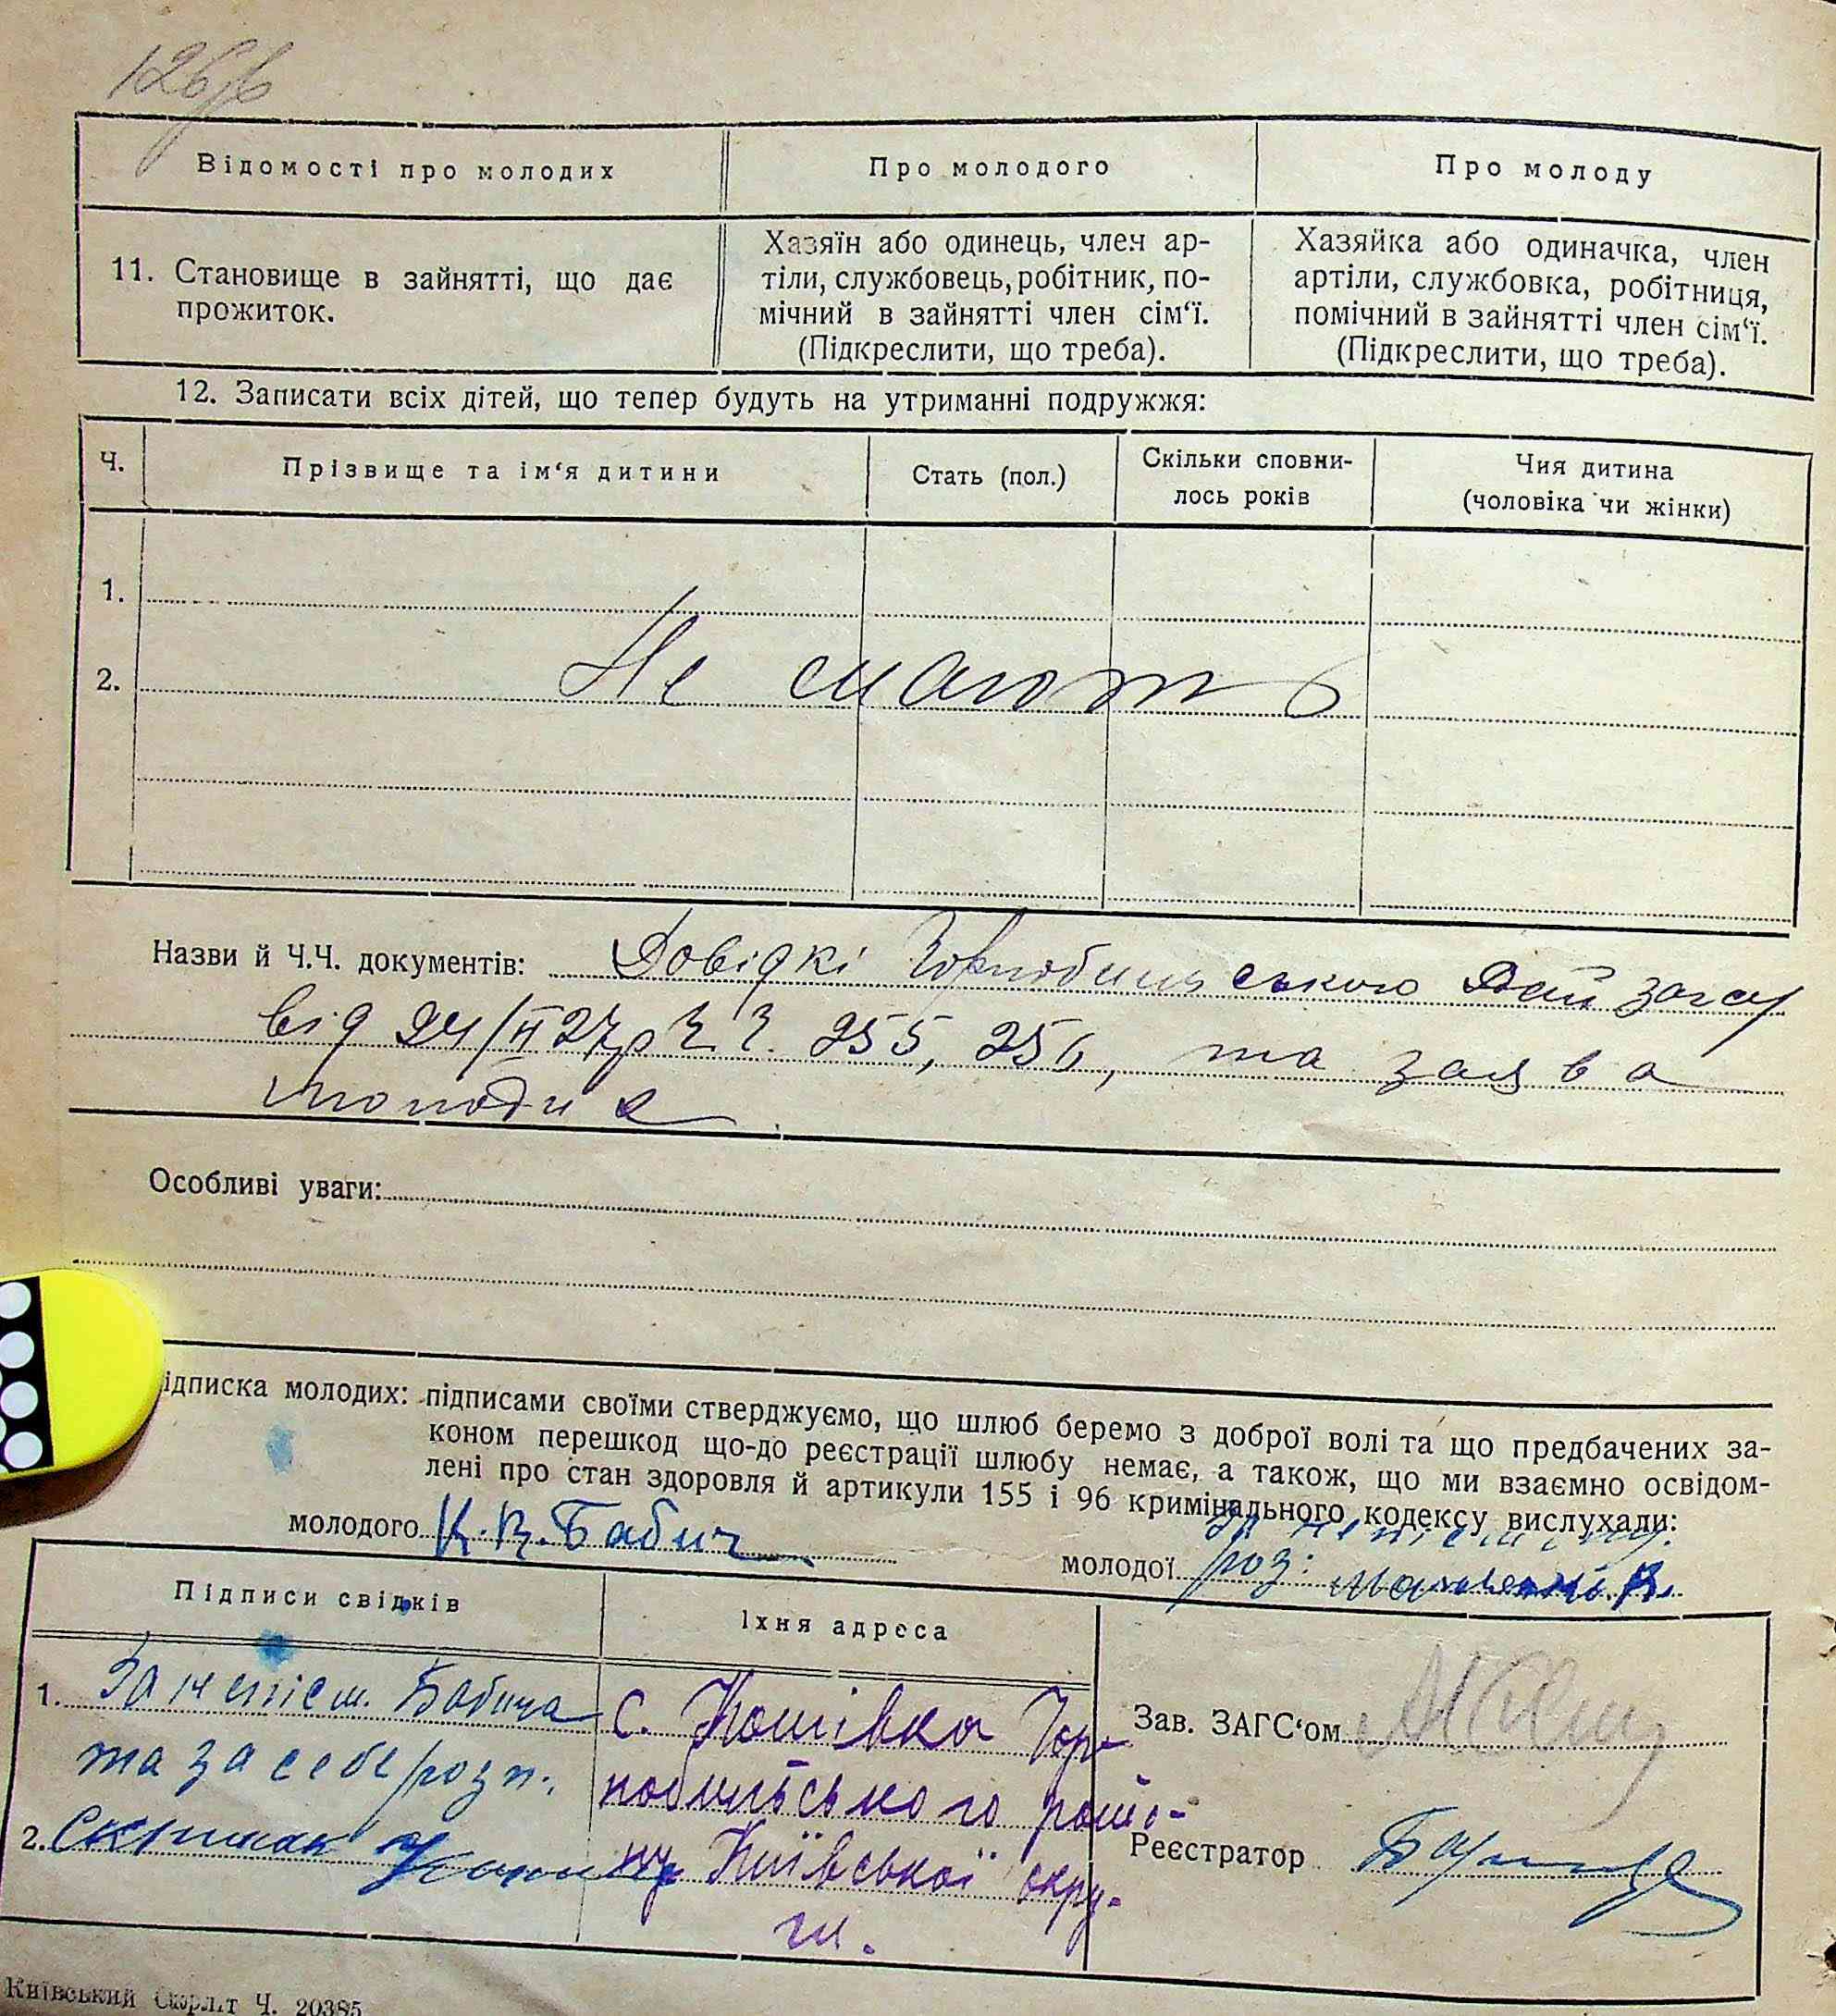 Відомості про молодих
Про молодого
Про молоду
11. Становище в зайнятті, що дає
прожиток.
Хазяїн або одинець, член ар-
тіли, службовець, робітник, по-
мічний в зайнятті член сім‘ї.
(Підкреслити, що треба).
Хазяйка або одиначка, член
артіли, службовка, робітниця,
помічний в зайнятті член сім‘ї.
(Підкреслити, що треба).
12. Записати всіх дітей, що тепер будуть на утриманні подружжя:
Ч.
Прізвище та ім‘я дитини
Стать (пол.)
Скільки сповни-
лось років
Чия дитина
(чоловіка чи жінки)
1.
2.
Не мають
Назви й Ч.Ч. документів: Довідкі Чорнобильського Рай загсу
від 24/II 27р Ч.Ч. 255, 256, та заява
молодих
Особливі уваги:
ідписка молодих: підписами своїми стверджуємо, що шлюб беремо з доброї волі та що предбачених за-
коном перешкод що-до реєстрації шлюбу немає, а також, що ми взаємно освідом-
лені про стан здоровля й артикули 155 і 96 кримінального кодексу вислухали:
молодого К.В. Бабич
молодої роз:
Підписи свідків
Їхня адреса
1. За непісм. Бабича
та за себе розп.
2.
с. Кошівка Чор-
нобильського райо-
ну Київської окру-
ги.
Зав. ЗАГС‘ом
Реєстратор
Київський Ч. 20385